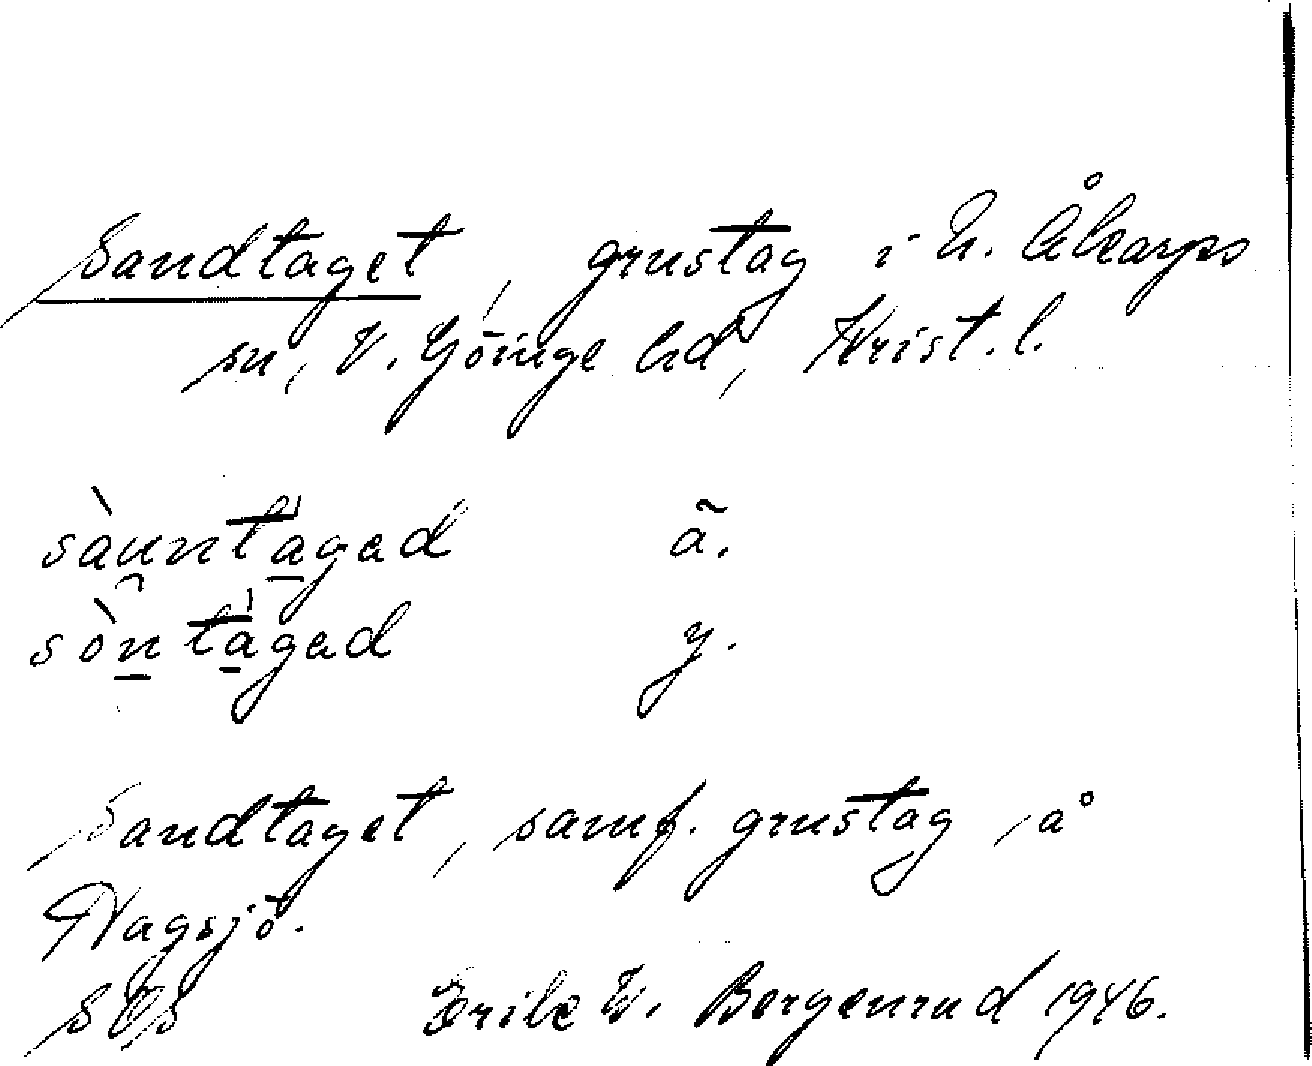 Sandtaget, grustag i N. Åkarps
sn, V. Göinge hd, Krist. l.
sàuntagad ã.
sòntàgad y.
Sandtaget, samf. grustag, å
Nagsjö.
SOS Erik W. Bergenrud 1946.